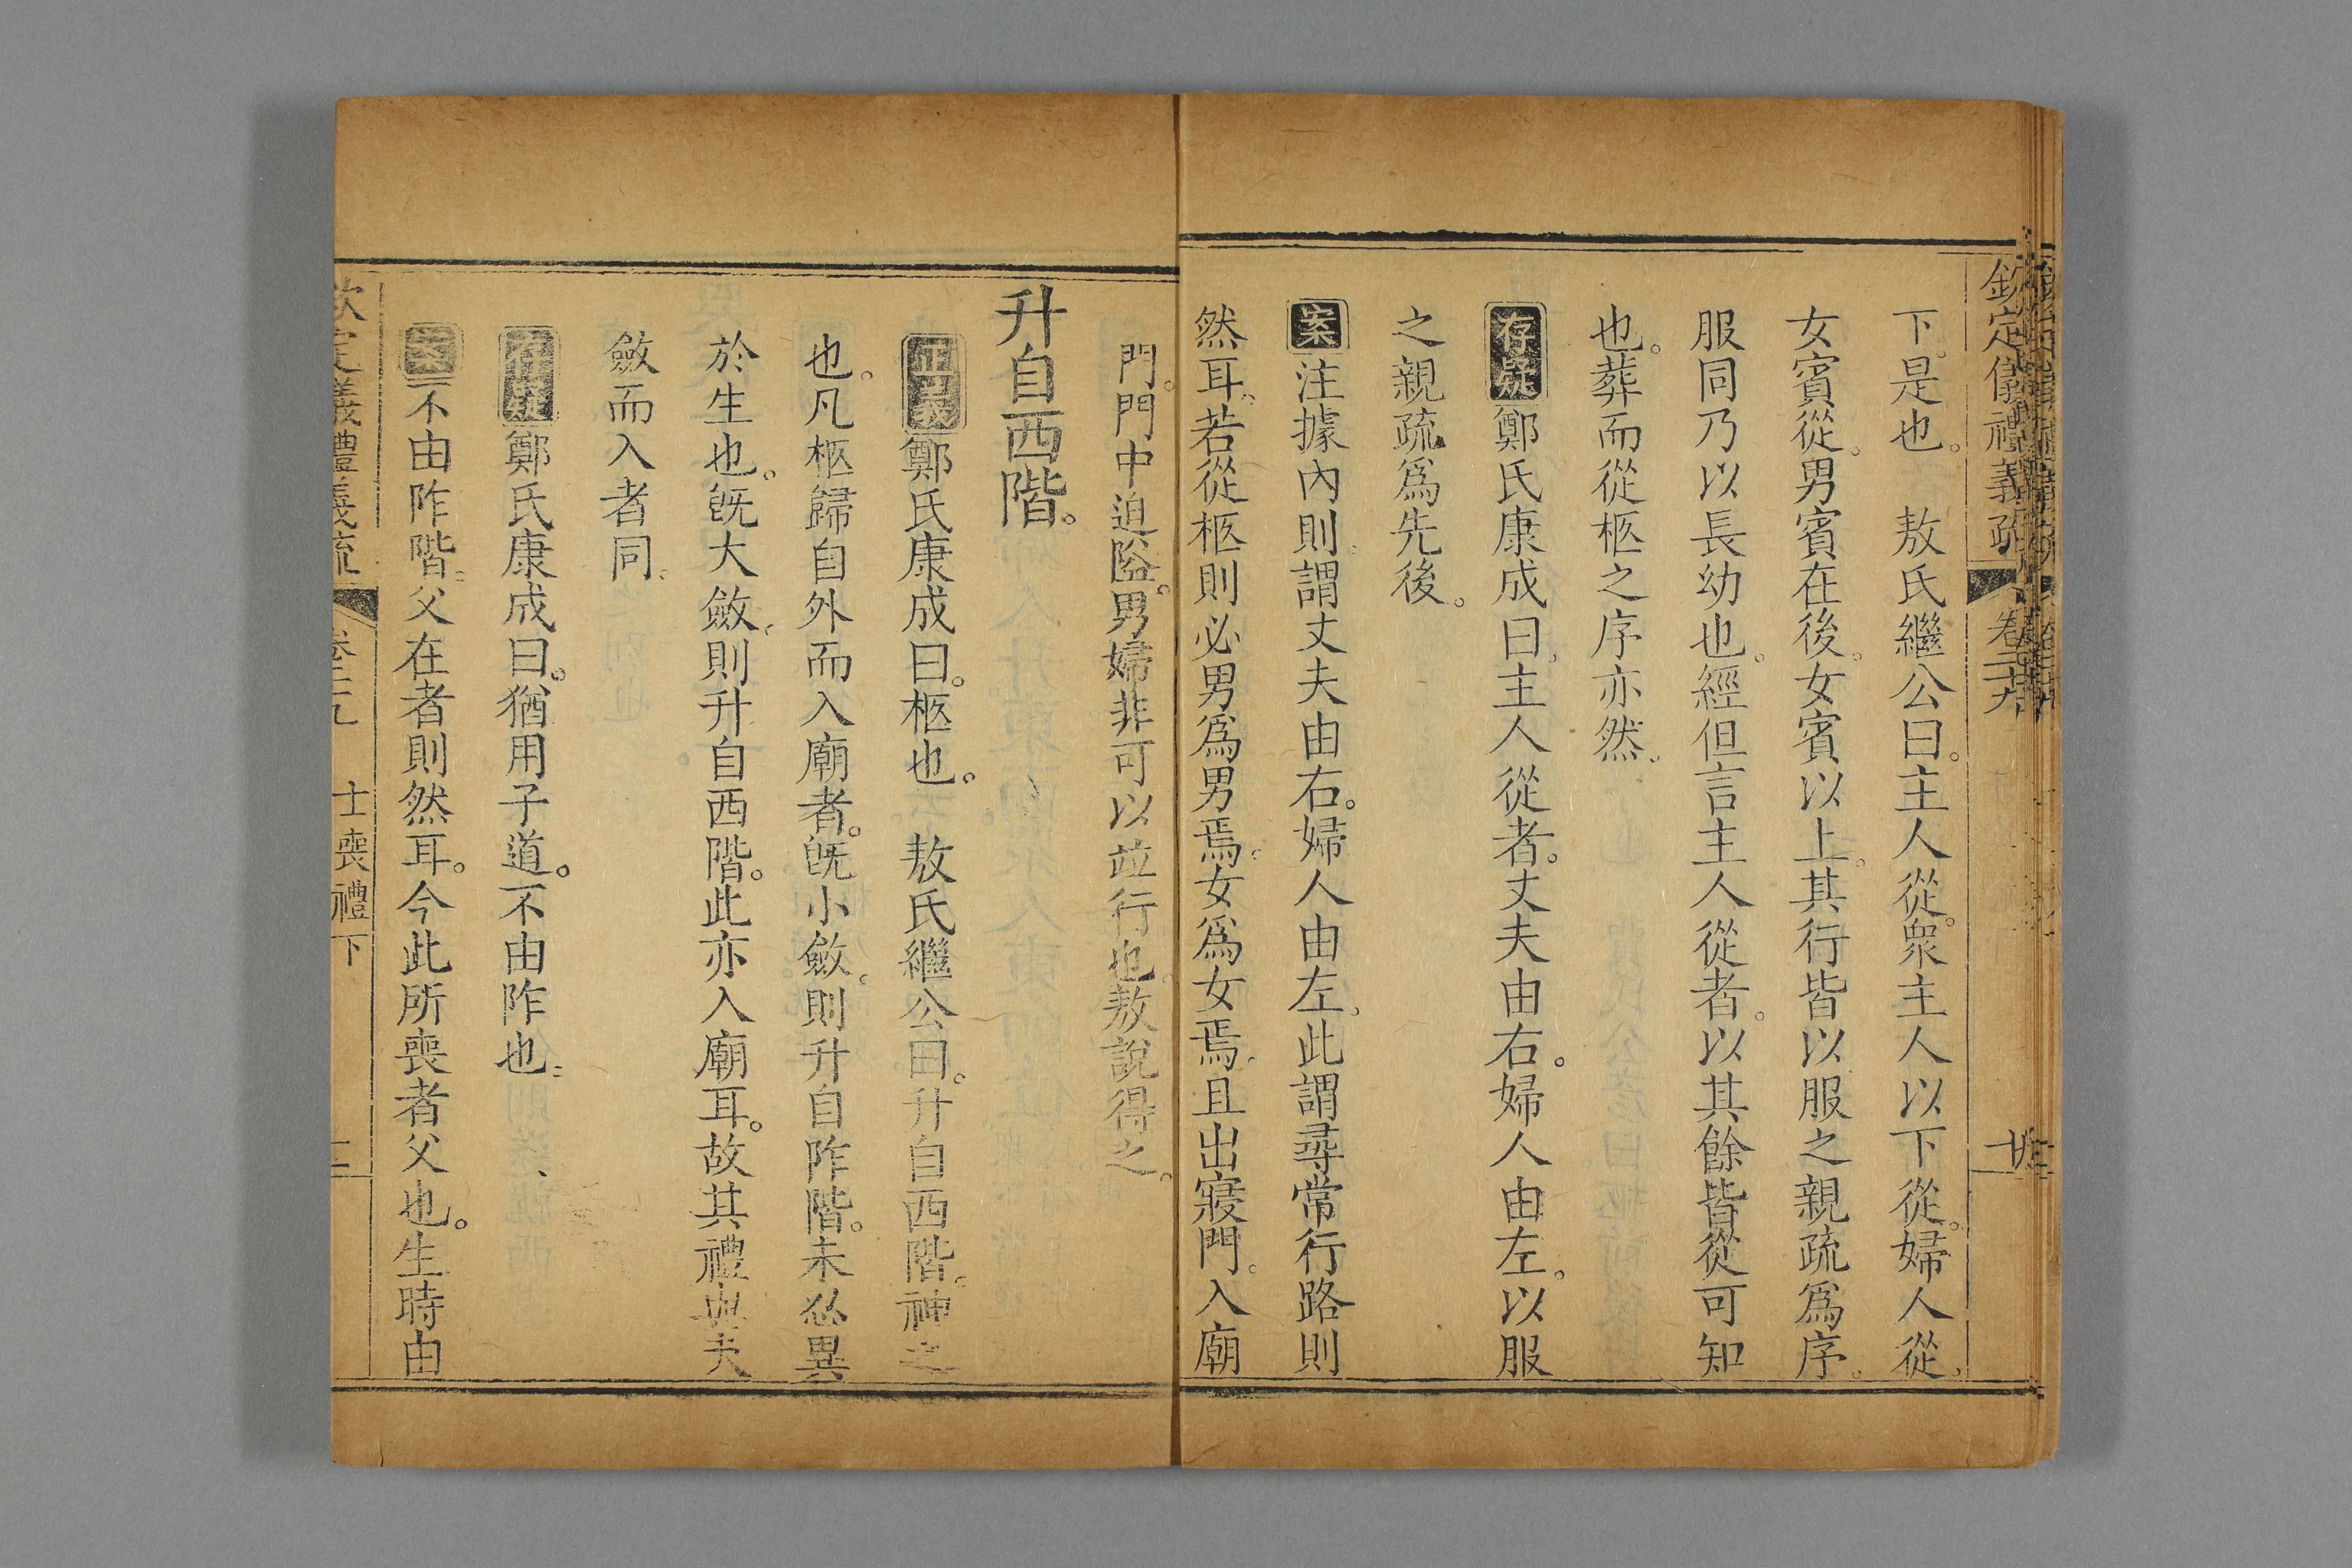 欽定儀禮義疏 卷二十九
下。是也。 敖氏繼公曰。主人從。衆主人以下從。婦人從。
女賓從。男賓在後。女賓以上。其行皆以服之親疏爲序。
服同乃以長幼也。經但言主人從者。以其餘皆從可知
也。葬而從柩之序亦然。
存疑鄭氏康成曰。主人從者。丈夫由右。婦人由左。以服
之親疏爲先後。
案注據內則。謂丈夫由右。婦人由左。此謂尋常行路則
然耳。若從柩則必男爲男焉。女爲女焉。且出寢門。入廟
門。門中迫隘。男婦非可以竝行也。敖說得之。
升自西階。
正義鄭氏康成曰。柩也。 敖氏繼公曰。升自西階。神之
也。凡柩歸自外而入廟者。旣小斂。則升自阼階。未忍異
於生也。旣大斂。則升自西階。此亦入廟耳。故其禮與夫
斂而入者同。
存疑鄭氏康成曰。猶用子道。不由阼也。
案不由阼階。父在者則然耳。今此所喪者父也。生時由
欽定儀禮義疏 卷二十九 士喪禮下